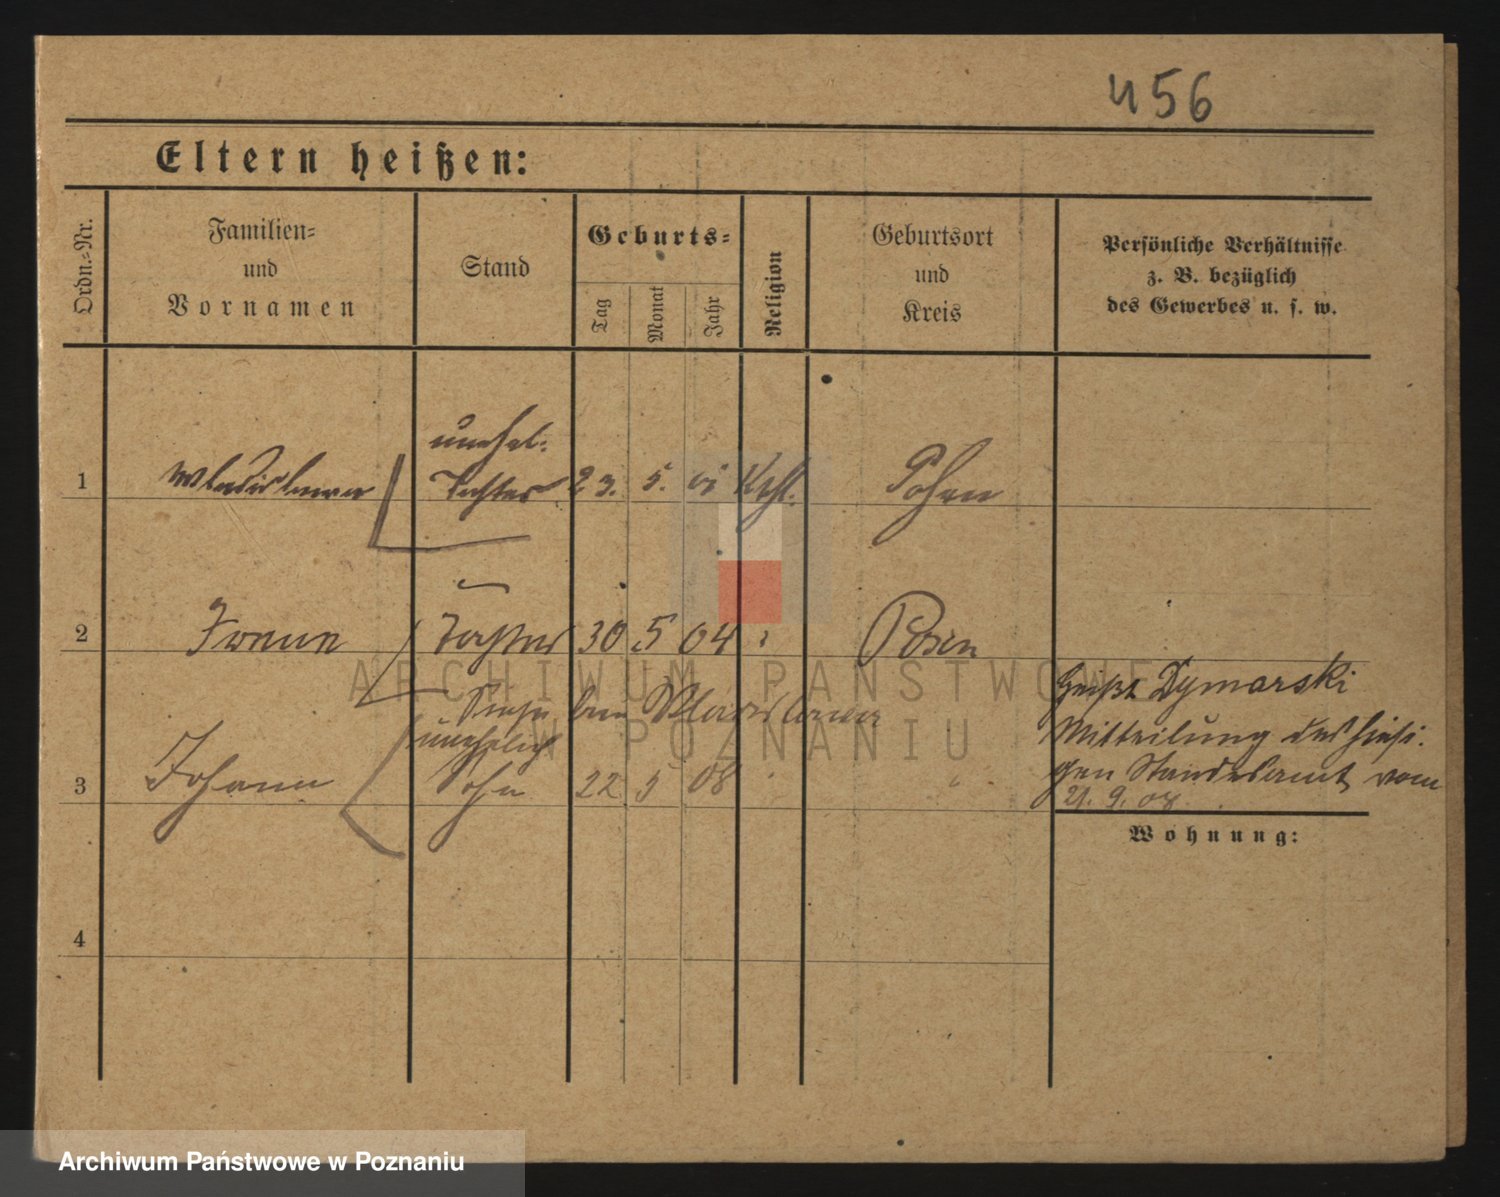 456
Eltern heißen:
Ordn.-Nr.
Familien-
und
Vornamen
Stand
Geburts-
Tag
Monat
Jahr
Religion
Geburtsort
und
Kreis
Persönliche Verhältnisse
z. B. bezüglich
des Gewerbes u. s. w.
unehel.
1 Wladislawa Tochter 23. 5. Kath. Posen
2 Irene Tochter 30 5 04 Posen
Heißt Dymarski
Wladislawa
unehelich
Mitteilung des hiesi-
3 Johann Sohn 22 5 08 "
gen Standesamts vom
21. 9. 08
Wohnung:
4
ARCHIWUM PAŃSTWOWE
W POZNANIU
Archiwum Państwowe w Poznaniu